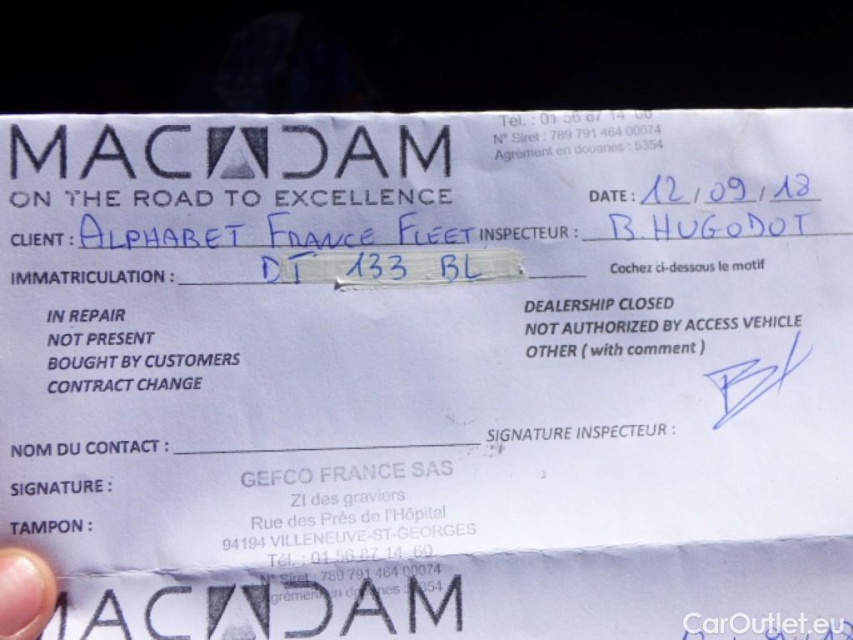 Tél. : 01 56 87 14 60
N° Siret : 789 791 464 00074
Agrément en douanes : 5354
MACADAM
ON THE ROAD TO EXCELLENCE
DATE : 12 / 09 / 18
CLIENT : ALPHABET FRANCE FLEET INSPECTEUR : B. HUGODOT
IMMATRICULATION : DT 133 BL
Cochez ci-dessous le motif
IN REPAIR
NOT PRESENT
BOUGHT BY CUSTOMERS
CONTRACT CHANGE
DEALERSHIP CLOSED
NOT AUTHORIZED BY ACCESS VEHICLE
OTHER ( with comment )
NOM DU CONTACT :
SIGNATURE INSPECTEUR :
SIGNATURE :
TAMPON :
GEFCO FRANCE SAS
ZI des graviers
Rue des Prés de l'Hôpital
94194 VILLENEUVE-ST-GEORGES
Tél. : 01 56 87 14 60
N° Siret : 789 791 464 00074
Agrément en douanes : 5354
MACADAM
CarOutlet.eu